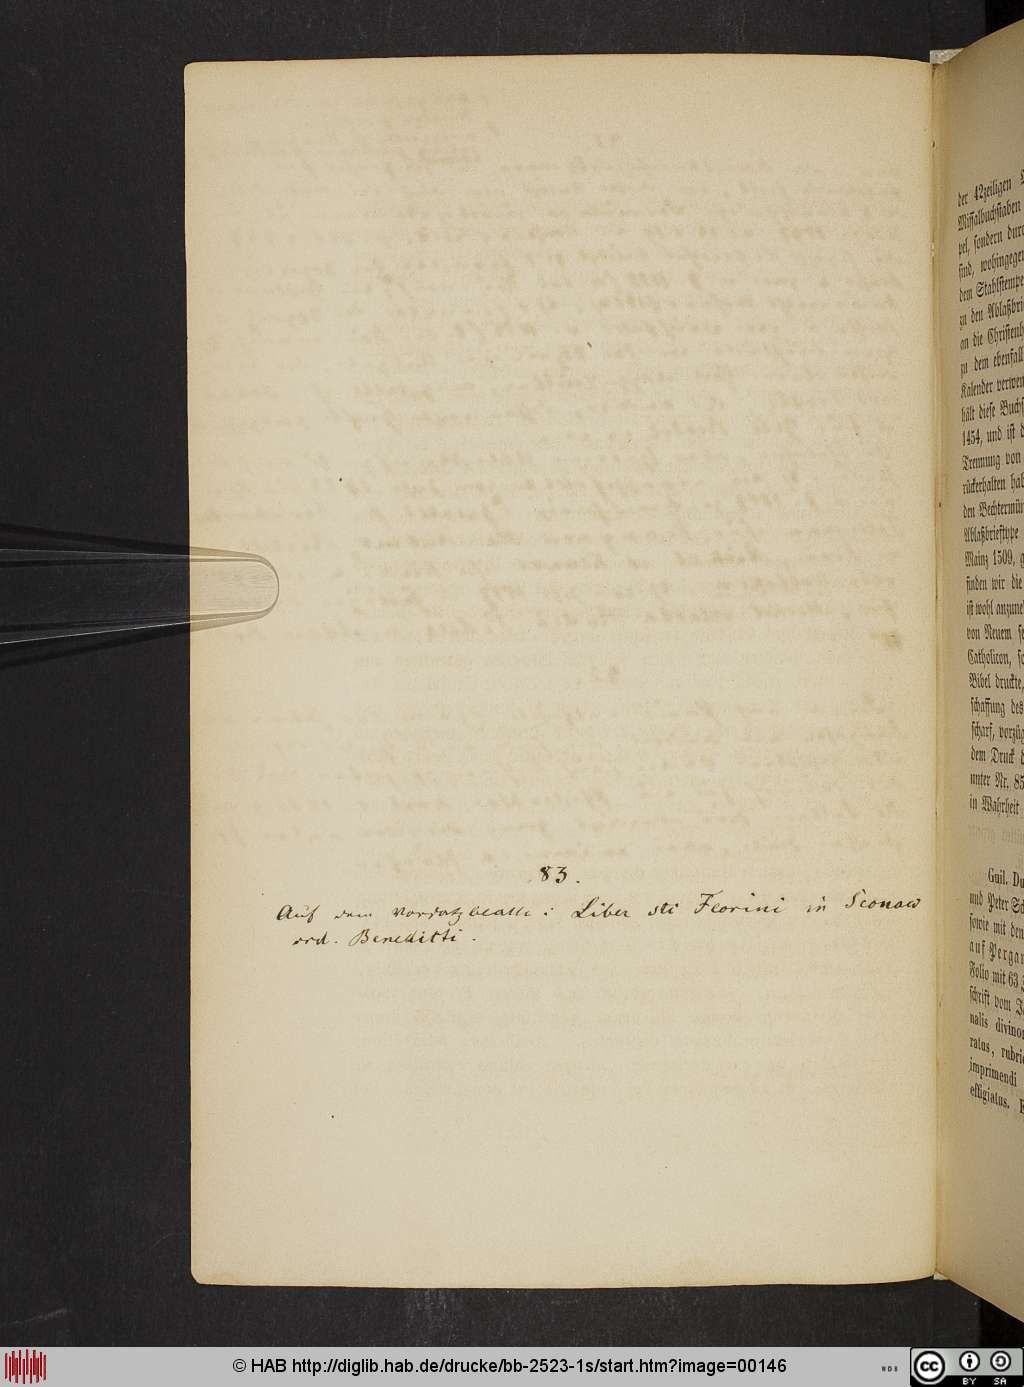 83.
Auf dem Vorsatzblatte: Liber sti Florini in Sconaw
ord. Beneditti.
der 42zeiligen
Missalbuchstaben
pel, sondern durch
sind, wohingegen
dem Stahlstempe
zu den Ablaßbri
an die Christenh
zu dem ebenfall
Kalender verwen
hält diese Buchs
1454, und ist d
Trennung von
rückerhalten hab
den Bechtermün
Ablaßbrieftype
Mainz 1509, g
finden wir die
ist wohl anzune
von Neuem se
Catholicon, so
Bibel druckte,
schaffung des
scharf, vorzüg
dem Druck d
unter Nr. 85
in Wahrheit
Guil. Du
und Peter Sch
sowie mit den
auf Pergam
Folio mit 63
schrift vom J
nalis divino
ratus, rubri
imprimendi
effigiatus. E
© HAB http://diglib.hab.de/drucke/bb-2523-1s/start.htm?image=00146
WDB
cc BY SA